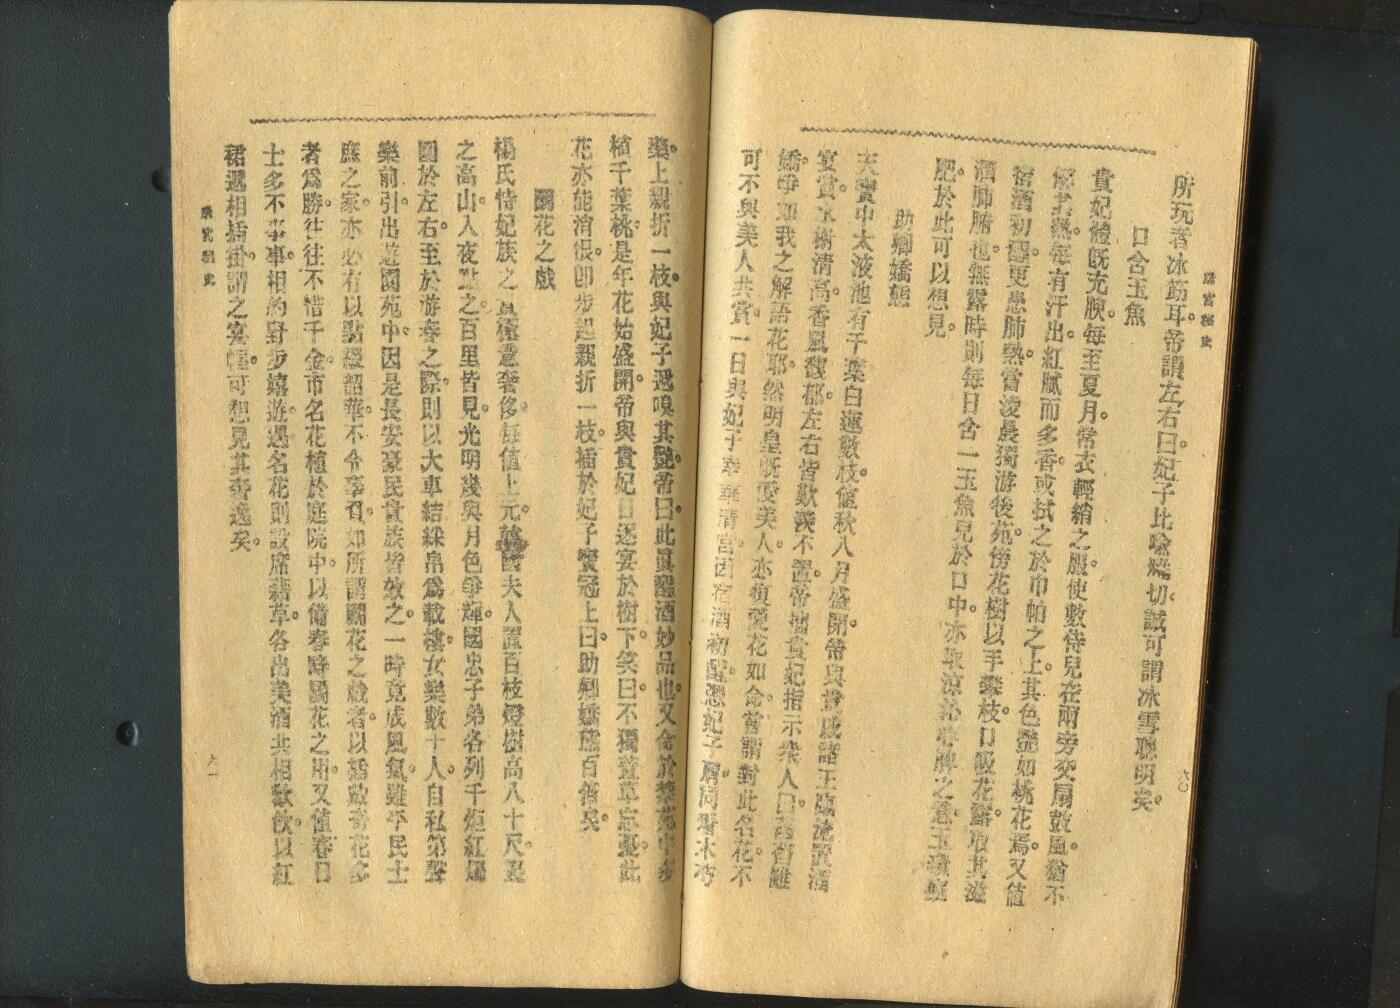 隋宮秘史
六〇
所玩者冰筋耳帝謂左右曰妃子比喻切誠可謂冰雪聰明矣
口含玉魚
貴妃體旣充腴每至夏月常衣輕綃之服使數侍兒在兩旁交扇鼓風猶不
解其熱每有汗出紅膩而多香或拭之於巾帕之上其色艷如桃花焉又值
宿酒初醒更患肺熱嘗淩晨獨游後苑傍花樹以手攀枝口吸花露取其滋
潤肺腑也無露時則每日含一玉魚兒於口中亦取涼沁心脾之意玉環
肥於此可以想見
助嬌態
天寶中太液池有千葉白蓮數枝値秋八月盛開帝與貴戚諸王臨池置酒
宴賞水榭清高香風馥郁左右皆歎羨不置帝指貴妃指示衆人曰
嬌爭如我之解語花耶然明皇旣愛美人亦復愛花如命嘗謂對此名花不
可不與美人共賞一日與妃子幸華清宮因宿酒初醒憑妃子肩同看木芍
藥上親折一枝與妃子遞嗅其艷帝曰此眞醒酒妙品也又命於禁苑中多
植千葉桃是年花始盛開帝與貴妃日逐宴於樹下笑曰不獨萱草忘憂此
花亦能消恨卽步起親折一枝插於妃子寶冠上曰助嬌態百倍矣
鬭花之戲
楊氏恃妃族之極意奢侈每值上元國夫人置百枝燈樹高八十尺
之高山入夜點之百里皆見光明幾與月色爭輝國忠子弟各列千炬紅燭
圍於左右至於游春之際則以大車結綵帛爲載樓女樂數十人自私第聲
樂前引出遊園苑中因是長安豪民貴族皆效之一時竟成風氣雖平民士
庶之家亦必有以點綴韶華不令辜負如所謂鬭花之戲者以插數奇花多
者爲勝往往不惜千金市名花植於庭院中以備春時鬭花之用又值春日
士多不事事相約野步嬉遊遇名花則設席藉草各出美酒共相歡飲以紅
裙遞相插掛謂之宴幄可想見其奢逸矣
隋宮秘史
六一